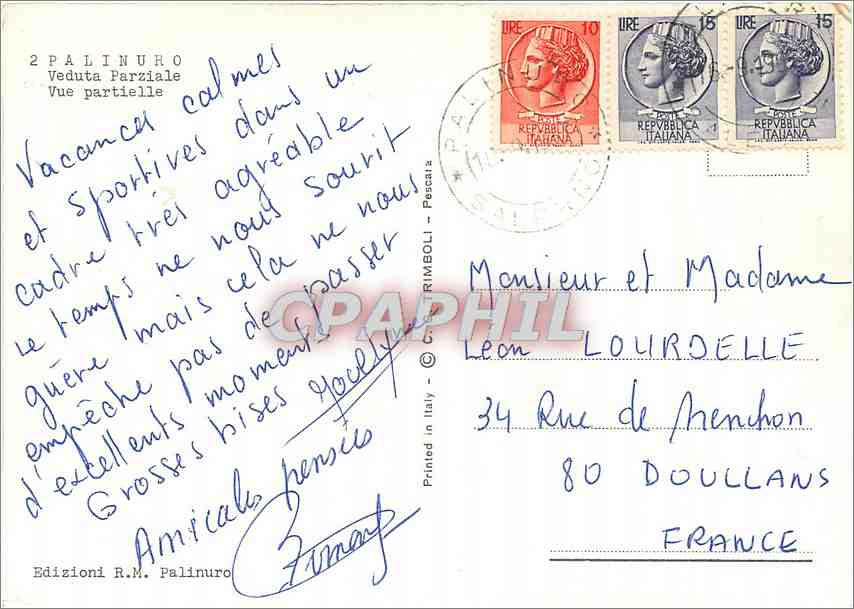 2 PALINURO
Veduta Parziale
Vue partielle
Vacances calmes
et sportives dans un
cadre très agréable
le temps ne nous sourit
guère mais cela ne nous
empêche pas de passer
d'excellents moments
Grosses bises
Amicales pensées
Edizioni R.M. Palinuro
Printed in Italy - © C. TRIMBOLI - Pescara
CPAPHIL
LIRE 10
POSTE
REPVBBLICA
ITALIANA
LIRE 15
POSTE
REPVBBLICA
ITALIANA
LIRE 15
POSTE
REPVBBLICA
ITALIANA
PALINURO
* SALERNO *
Monsieur et Madame
Léon LOURDELLE
34 Rue de Menchon
80 DOULLANS
FRANCE